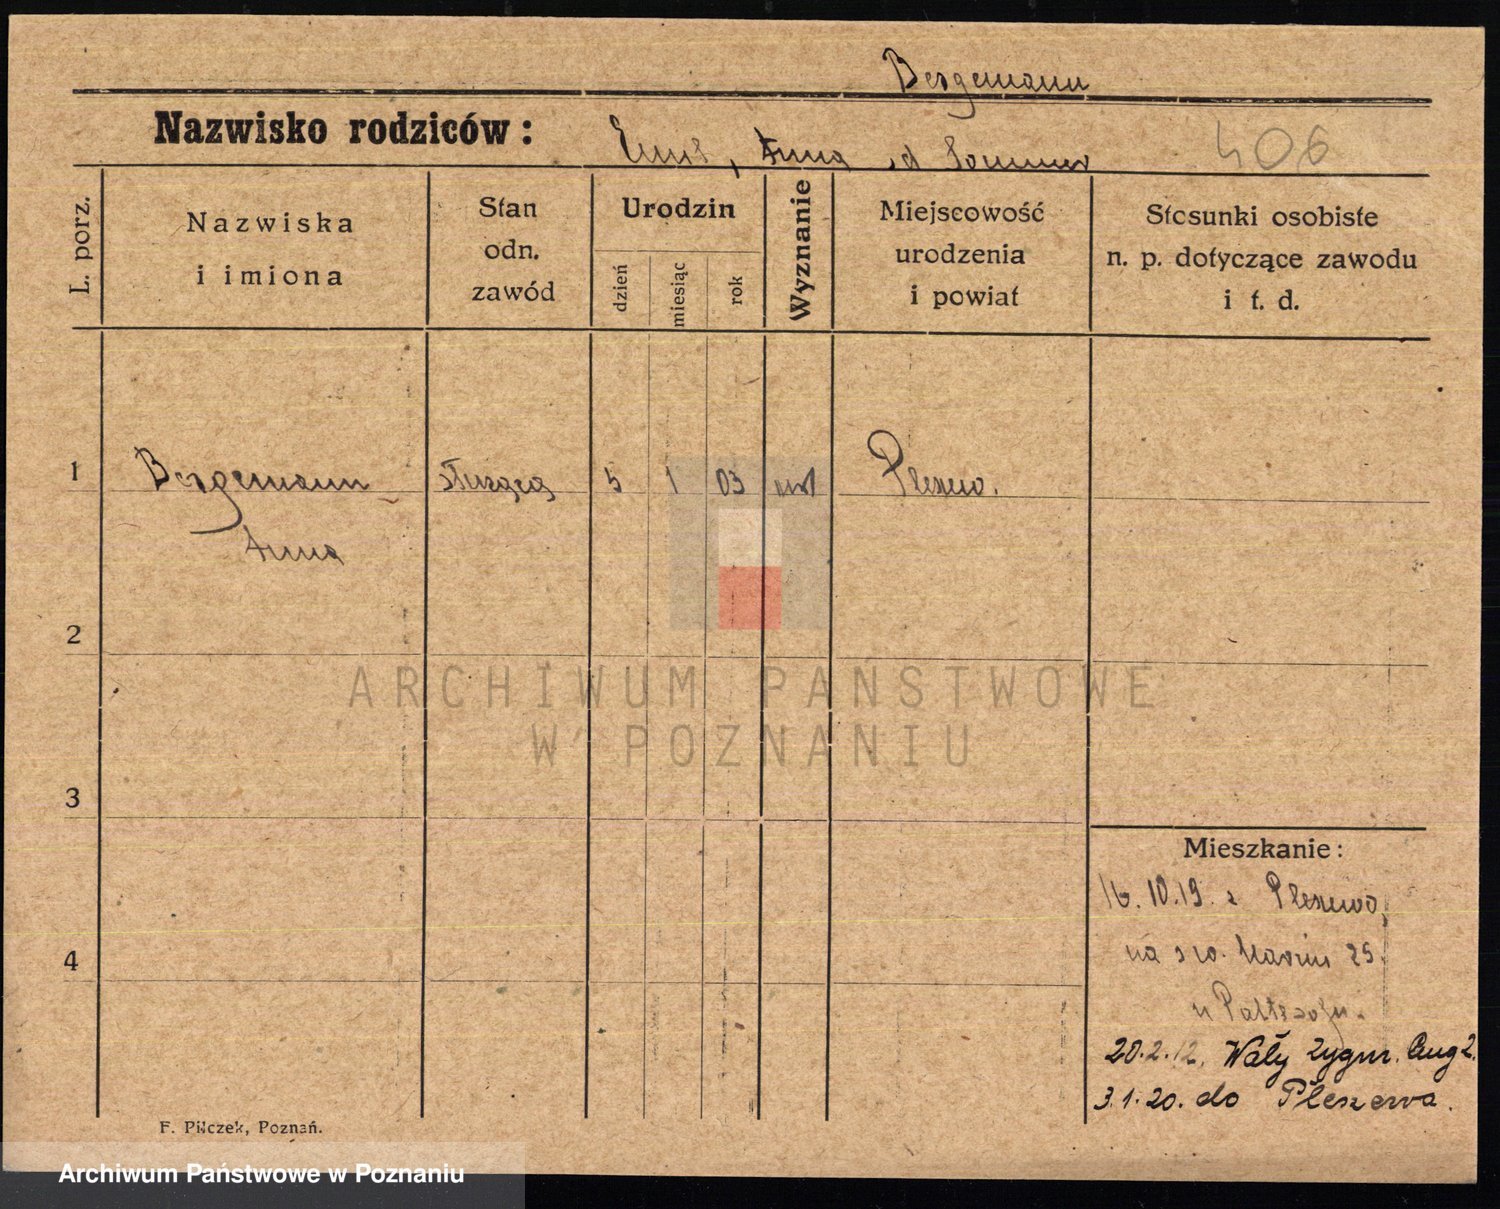 Bergemann
Nazwisko rodziców:
Emil, Anna d Sommer
406
L. porz.
Nazwiska
i imiona
Stan
odn.
zawód
Urodzin
dzień
miesiąc
rok
Wyznanie
Miejscowość
urodzenia
i powiat
Stosunki osobiste
n. p. dotyczące zawodu
i t. d.
1
Bergemann
służąca
5
1
03
Pleszew.
Anna
2
ARCHIWUM PAŃSTWOWE
W POZNANIU
3
Mieszkanie:
16.10.19. z Plesewo,
4
na św. Marcin 25.
20.2.12. Wały Zygm. Aug 2.
3.1.20. do Pleszewa.
F. Pilczek, Poznań.
Archiwum Państwowe w Poznaniu